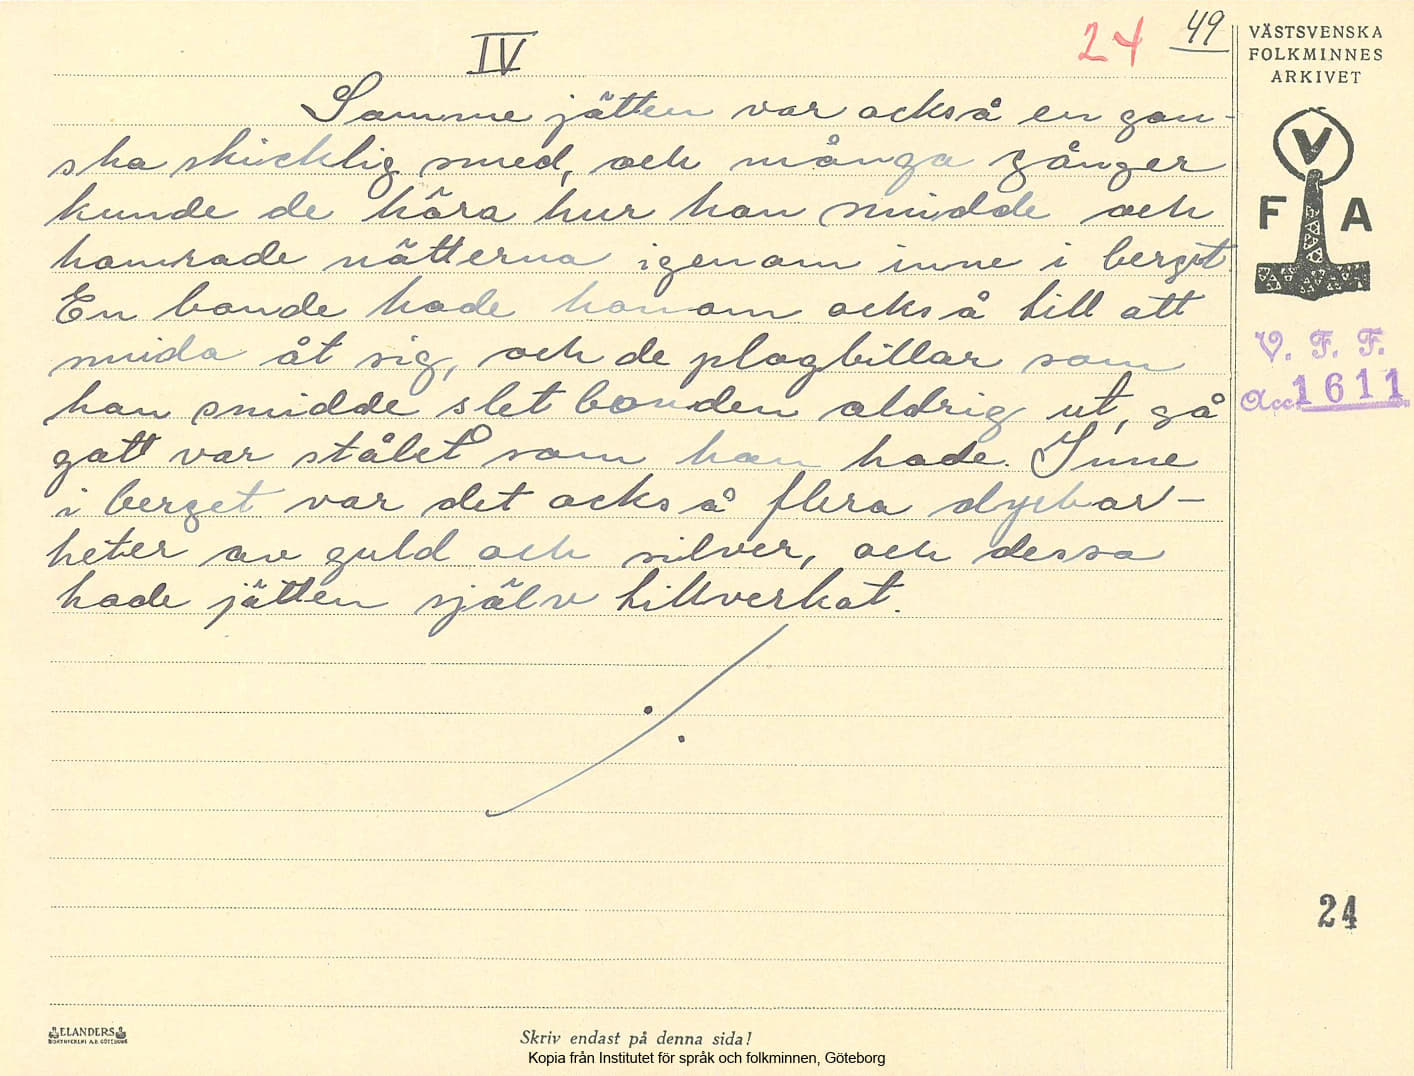 IV
24
49
Samme jätten var också en gan-
ska skicklig smed, och många gånger
kunde de höra hur han smidde och
hamrade nätterna igenom inne i berget.
En bonde hade honom också till att
smida åt sig, och de plogbillar som
han smidde slet bonden aldrig ut, så
gott var stålet som han hade. Inne
i berget var det också flera dyrbar-
heter av guld och silver, och dessa
hade jätten själv tillverkat.
VÄSTSVENSKA
FOLKMINNES
ARKIVET
V
F A
V. F. F.
Acc. 1611
24
ELANDERS
Skriv endast på denna sida!
Kopia från Institutet för språk och folkminnen, Göteborg